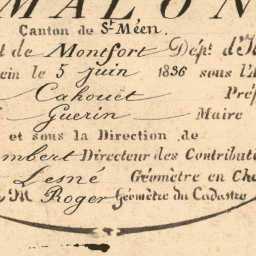 MALON
Canton de St Méen.
t de Montfort Dépt d'I
ein le 5 juin 1836 sous l'A
Cahouët Pré
Guerin Maire
et sous la Direction de
mbert Directeur des Contribut
Lesné Géomètre en Che
M Roger Géomètre du Cadastre